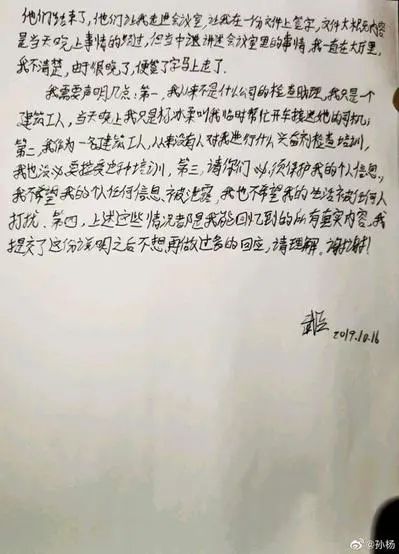 他们结束了，他们让我走进会议室，让我在一份文件上签字，文件大概内容
是当天晚上事情的经过，但当中还讲述会议室里的事情，我一直在大厅里，
我不清楚，由于很晚了，便签了字马上走了.
我需要声明几点：第一，我从来不是什么公司的检查助理，我只是一个
建筑工人，当天晚上我只是杨亦柔叫我临时帮忙开车接送他的司机；
第二，我作为一名建筑工人，从来没有人对我进行什么兴奋剂检查培训，
我也没必要接受这种培训，第三，请你们必须保护我的个人信息，
我不希望我的个人任何信息被泄露，我也不希望我的生活被任何人
打扰。第四，上述这些情况都是我能回忆到的所有真实内容，我
提交了这份说明之后不想再做过多的回应，请理解。谢谢！
2019.10.16
@孙杨